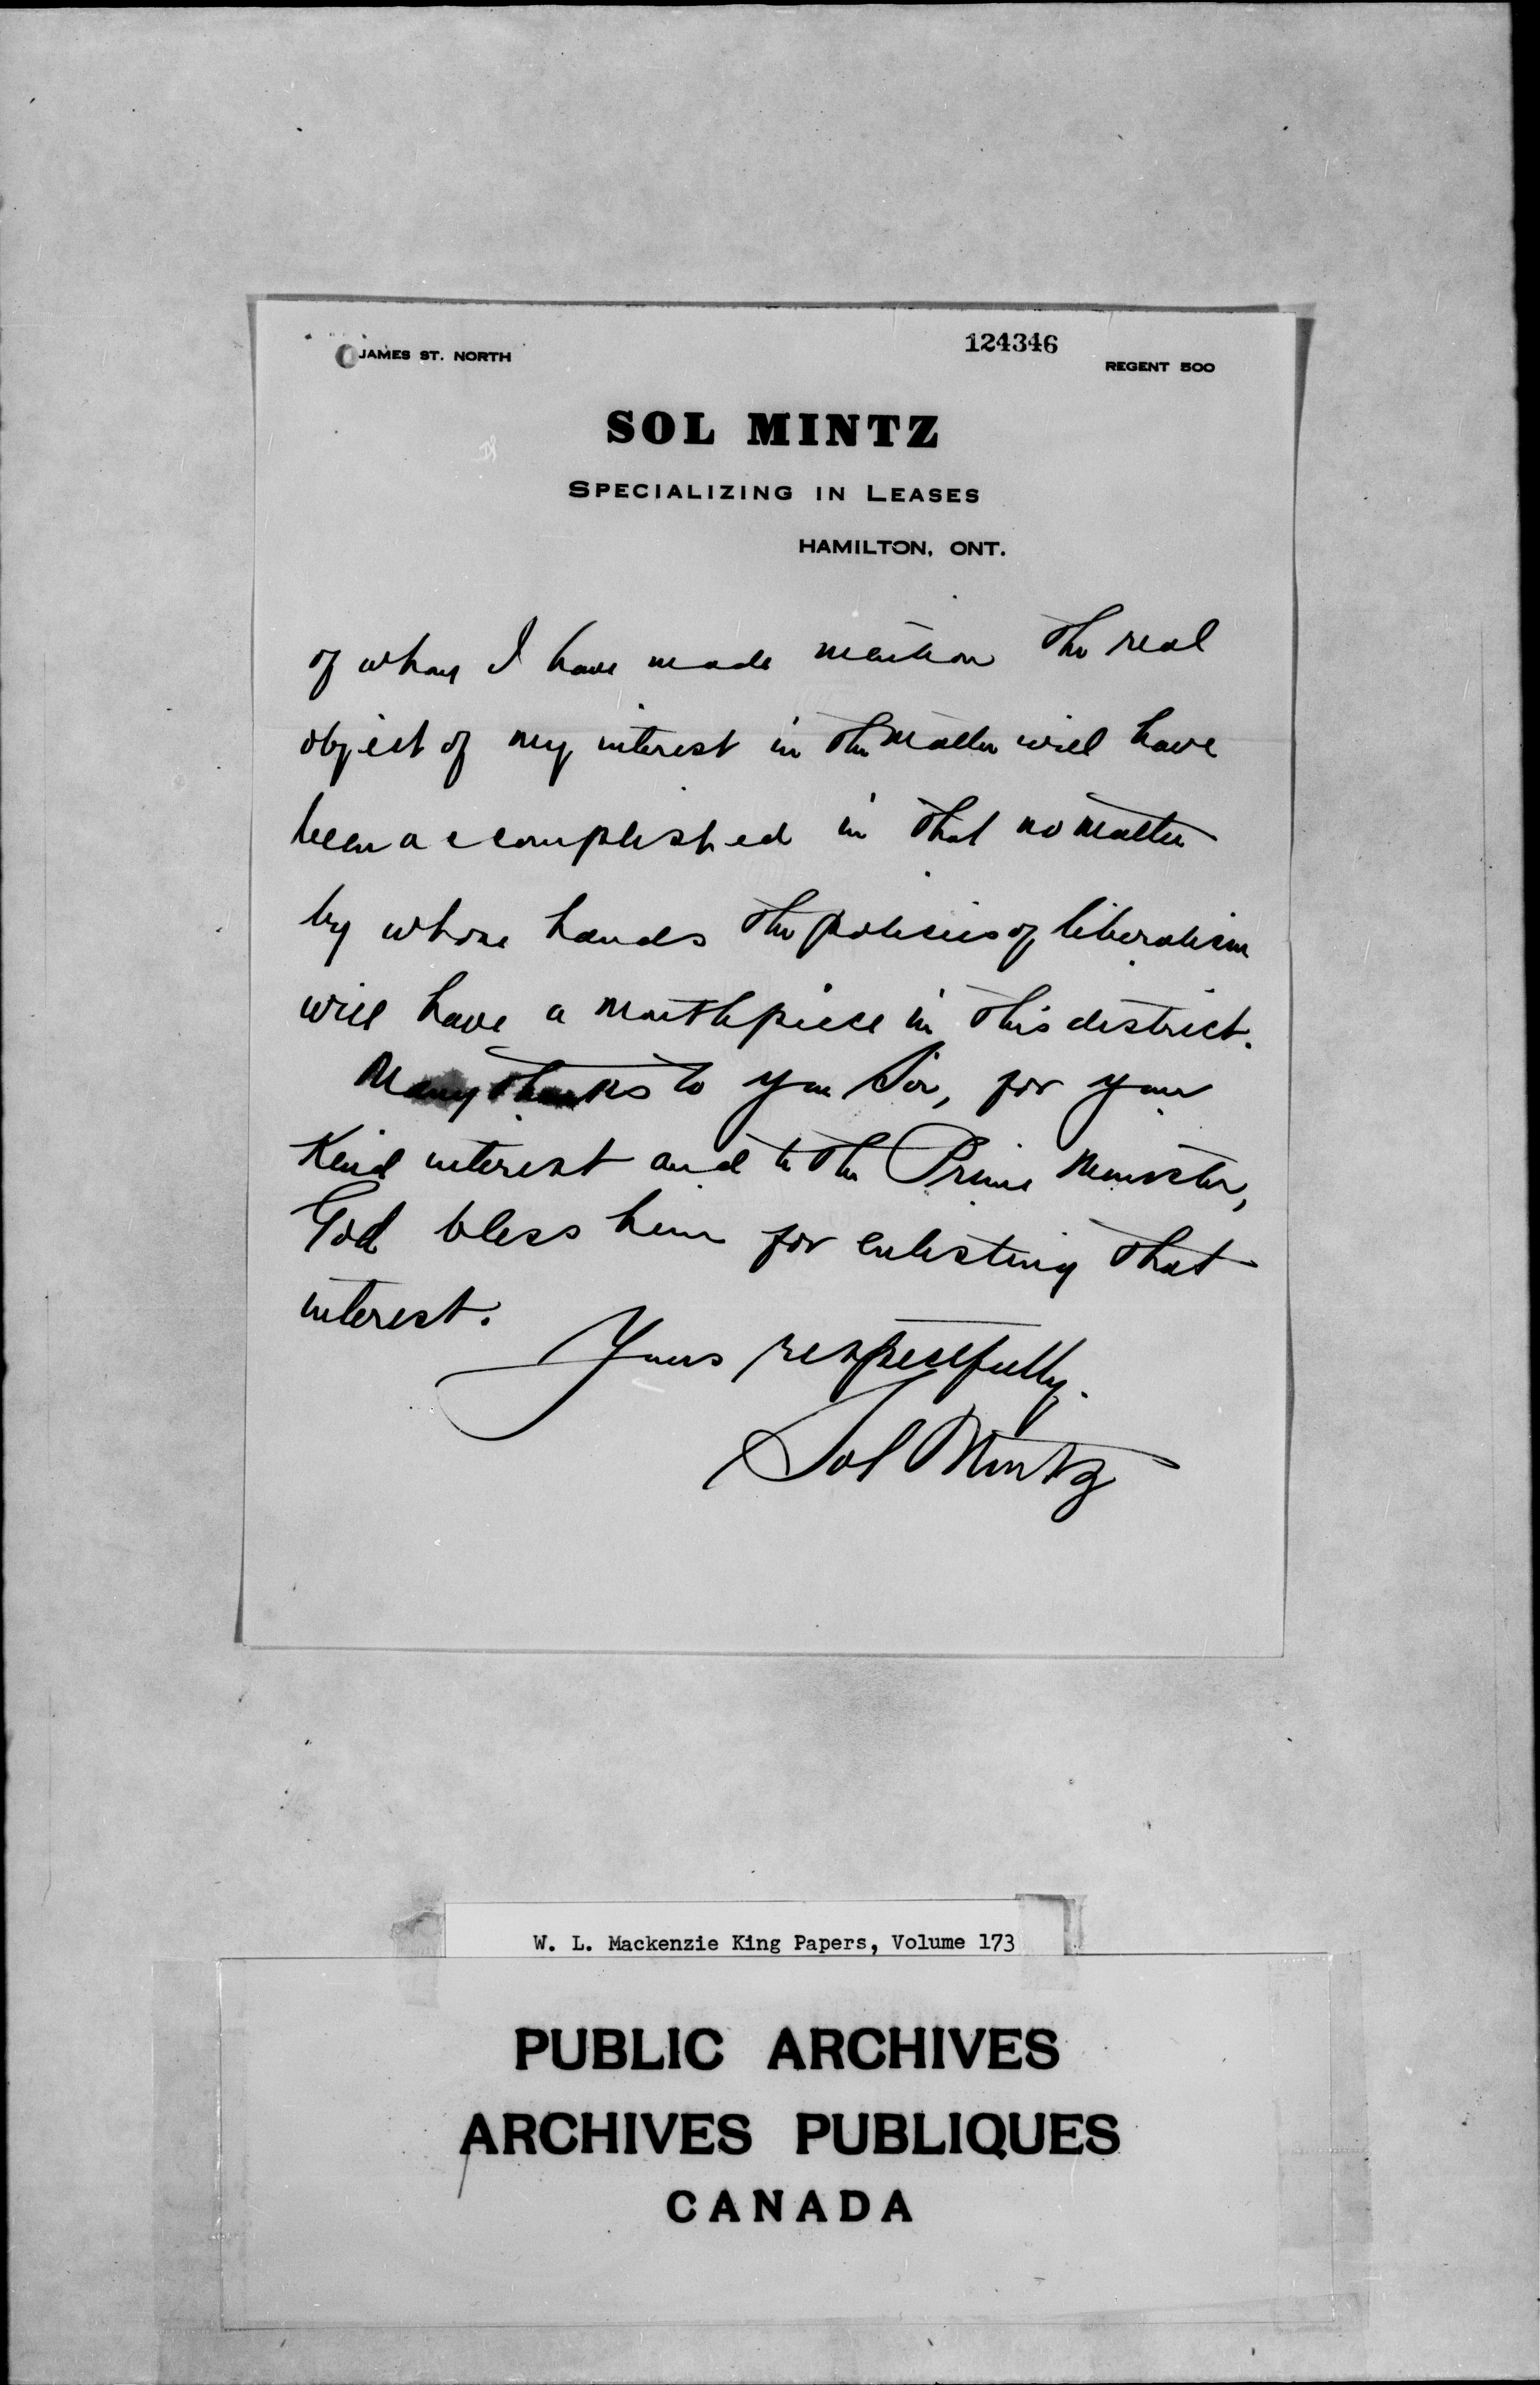 JAMES ST. NORTH
124346
REGENT 500
SOL MINTZ
SPECIALIZING IN LEASES
HAMILTON, ONT.
of whom I have made mention the real
object of my interest in the matter will have
been accomplished in that no matter
by whose hands the policies of liberalism
will have a mouthpiece in this district.
Many thanks to you Sir, for your
Kind interest and to the Prime Minister,
God bless him for enlisting that
interest.
Yours respectfully.
Sol Mintz
W. L. Mackenzie King Papers, Volume 173
PUBLIC ARCHIVES
ARCHIVES PUBLIQUES
CANADA